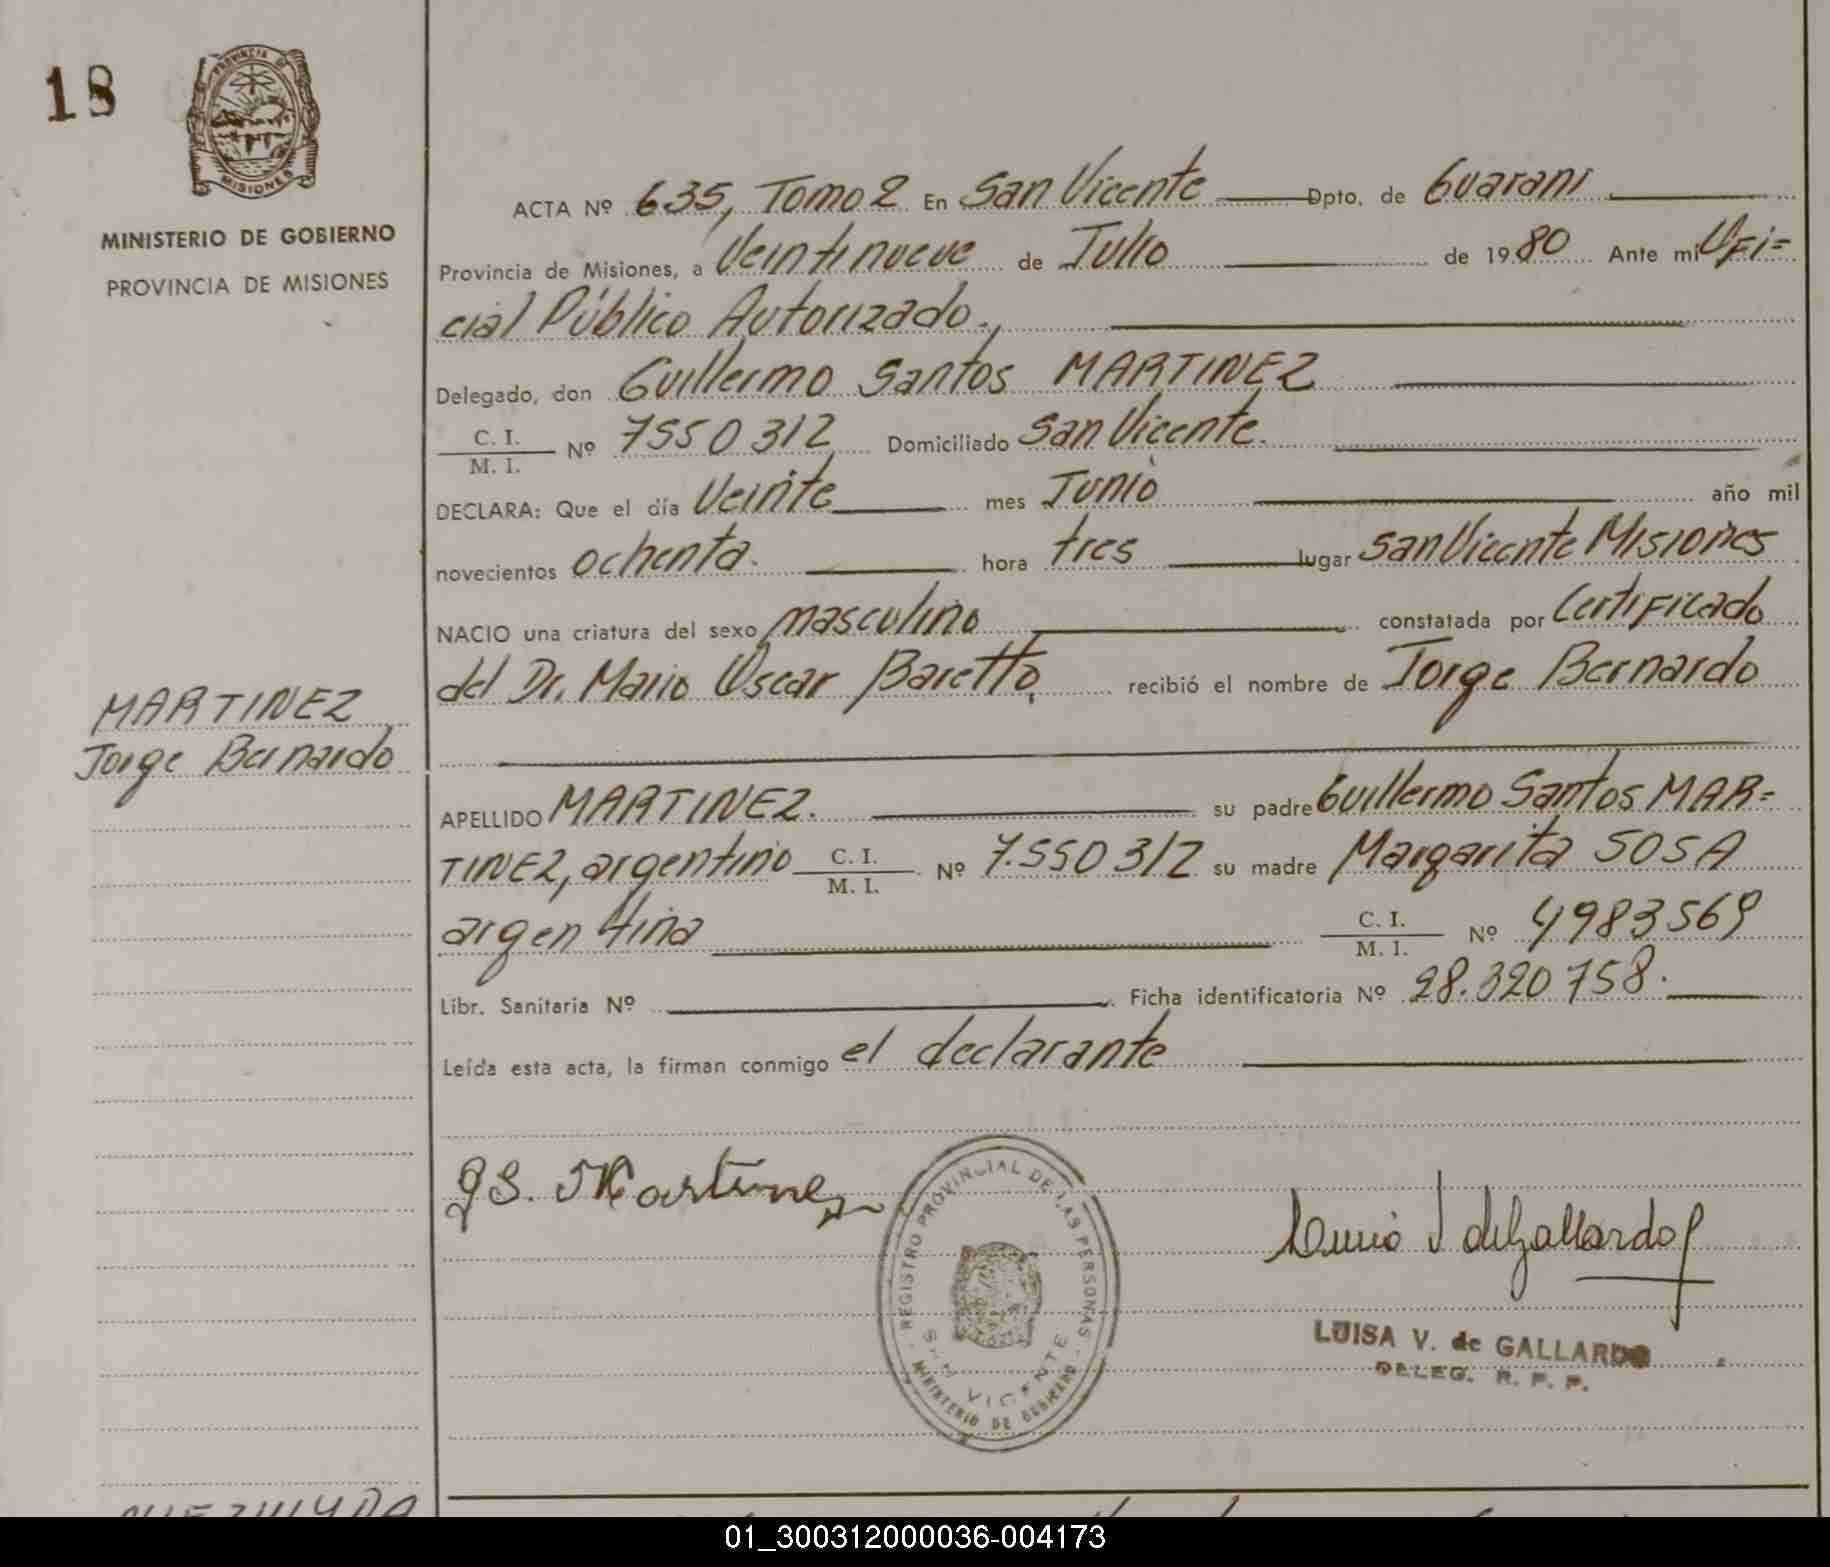 18
PROVINCIA DE
MISIONES
MINISTERIO DE GOBIERNO
PROVINCIA DE MISIONES
ACTA Nº 635, Tomo 2 En San Vicente Dpto. de Guaraní
Provincia de Misiones, a Veintinueve de Julio de 1980 Ante mi Ofi=
cial Público Autorizado.,
Delegado, don Guillermo Santos MARTINEZ
C. I.
M. I. Nº 7550312 Domiciliado San Vicente.
DECLARA: Que el día Veinte mes Junio año mil
novecientos ochenta. hora tres lugar San Vicente Misiones
NACIO una criatura del sexo masculino constatada por Certificado
del Dr. Mario Oscar Baretto, recibió el nombre de Jorge Bernardo
MARTINEZ
Jorge Bernardo
APELLIDO MARTINEZ. su padre Guillermo Santos MAR=
TINEZ, argentino C. I. M. I. Nº 7.550312 su madre Margarita SOSA
argentina C. I. M. I. Nº 4983569
Libr. Sanitaria Nº Ficha identificatoria Nº 28.320758.
Leída esta acta, la firman conmigo el declarante
G S. Martinez
REGISTRO PROVINCIAL DE LAS PERSONAS
SAN VICENTE
MINISTERIO DE GOBIERNO
deGallardo
LUISA V. de GALLARDO
DELEG. R. P. P.
01_300312000036-004173